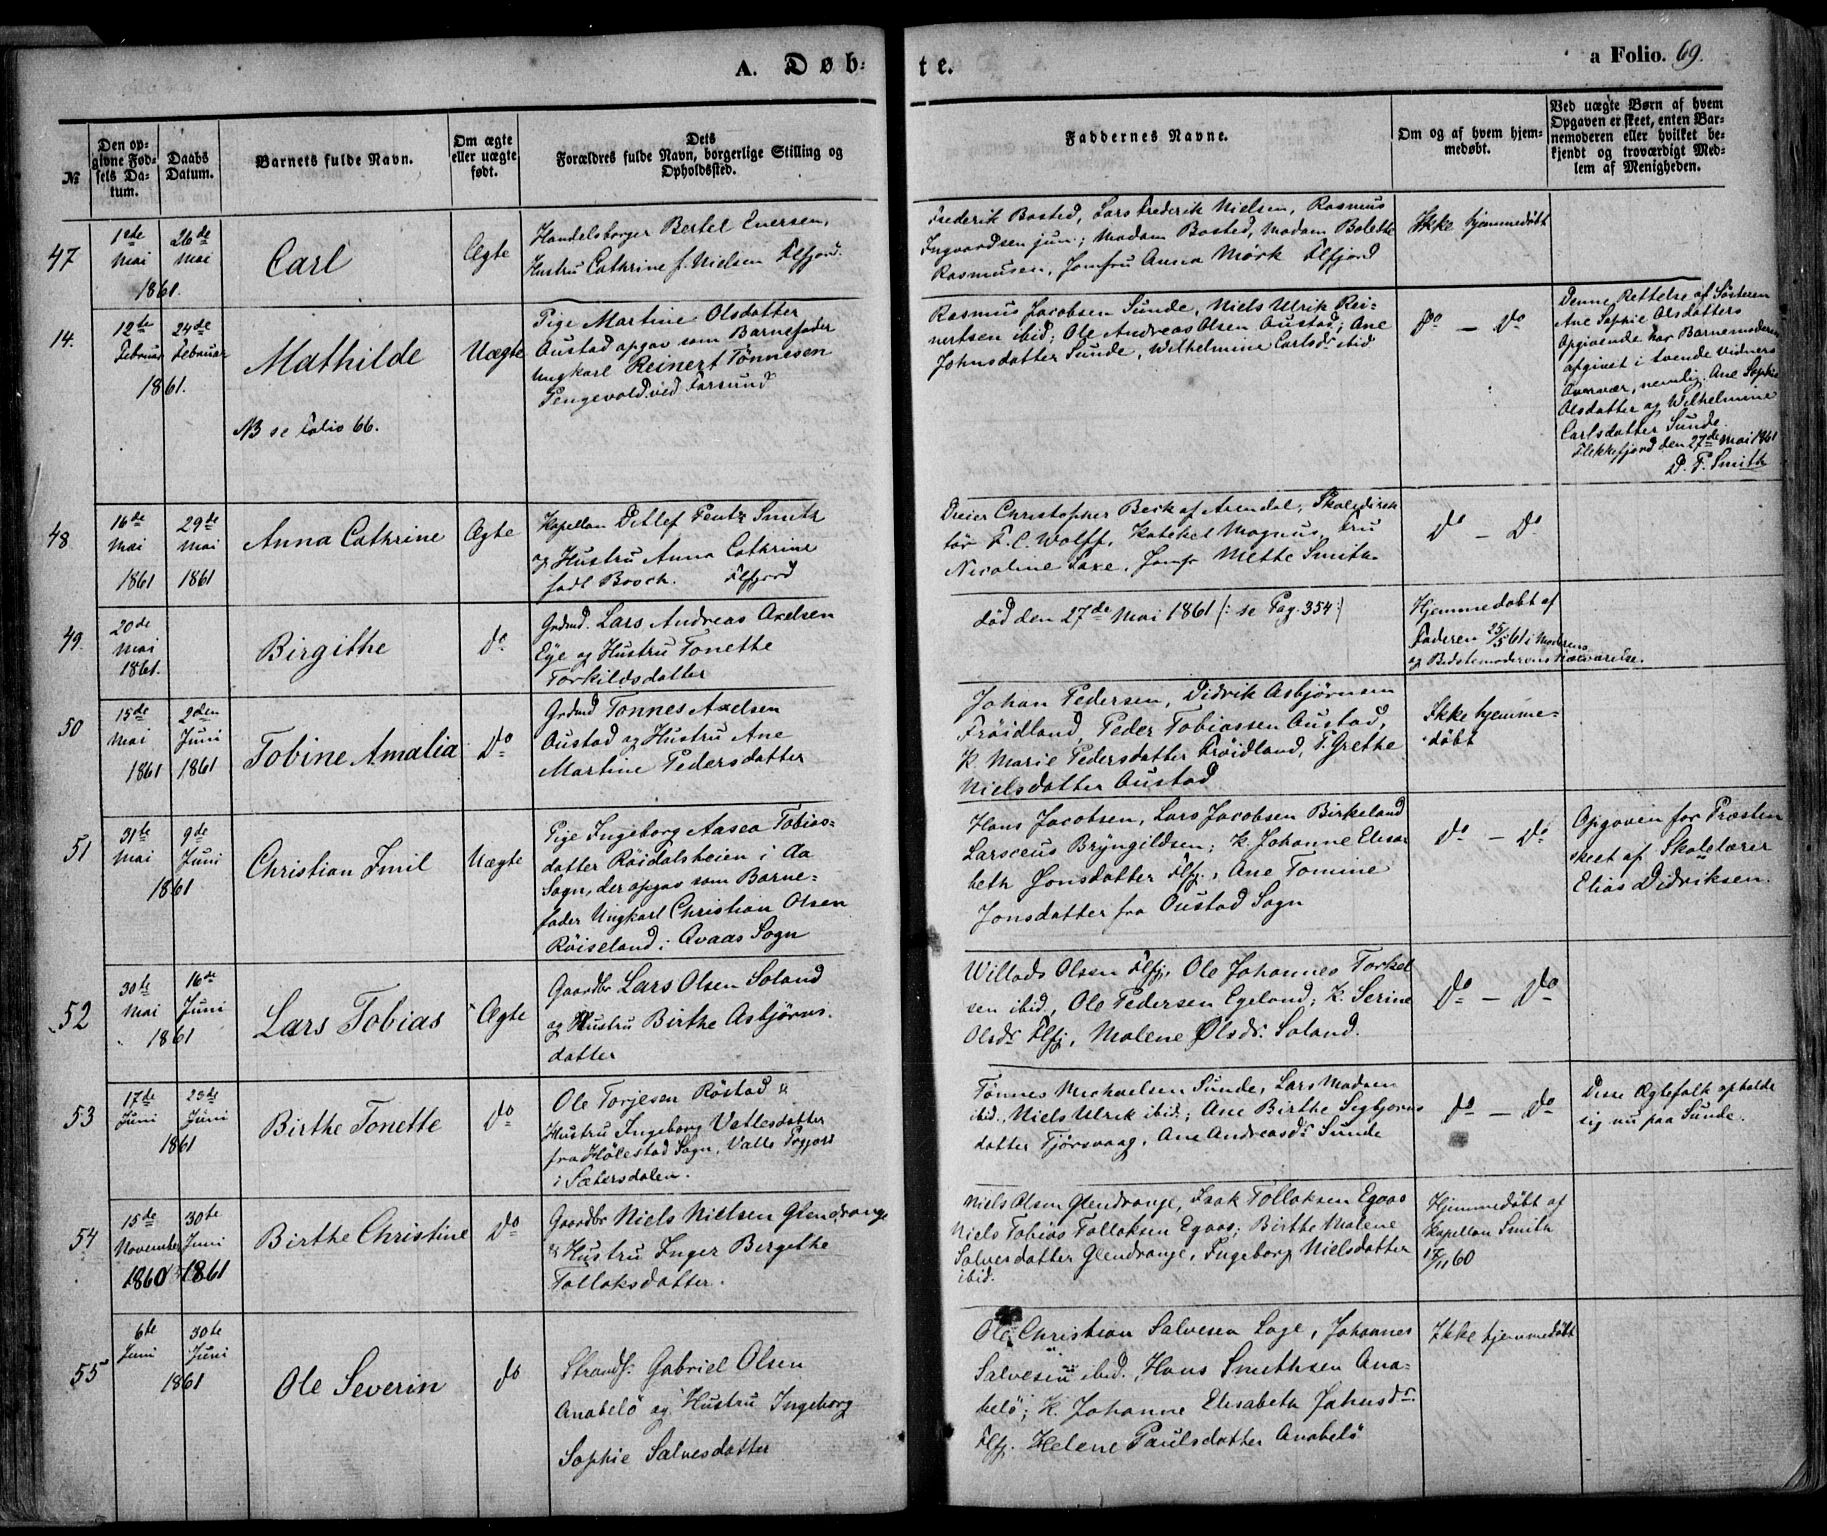 A. Døb-
te.
a Folio. 69.
№
Den op-
givne Fød-
sels Da-
tum.
Daabs
Datum.
Barnets fulde Navn.
Om ægte
eller uægte
født.
Dets
Forældres fulde Navn, borgerlige Stilling og
Opholdssted.
Faddernes Navne.
Om og af hvem hjem-
medøbt.
Ved uægte Børn af hvem
Opgaven er skeet, enten Bar-
nemoderen eller hvilket be-
kjendt og troværdigt Med-
lem af Menigheden.
47
1ste
Mai
26de
Mai
1861.
Carl
Ægte
Handelsborger Bertel Eversen,
Hustru Cathrine f. Nielsen Flfjord.
Frederik Bosted, Lars Frederik Nielsen, Rasmus
Ingvardsen jun; Madam Bosted, Madam Bolette
Rasmusen, Jomfru Anna Mörk Flfjord
Ikke hjemmedöbt
14.
12te
Februar
24de
Februar
1861.
Mathilde
NB se Folio 66.
Uægte
Pige Martine Olsdatter
Austad opgav som Barnefader
Ungkarl Reinert Tönnesen
Pengevold ved Farsund
Rasmus Jacobsen Sunde, Niels Ulrik Rei-
nertsen ibid; Ole Andreas Olsen Austad; Ane
Johnsdatter Sunde, Wilhelmine Carlsdr ibid
Do - Do
Denne Rettelse af Sösteren
Ane Sophie Olsdatters
Opgivende har Barnemoderen
afgivet i tvende Vidners
Overvær, nemlig: Ane Sophie
Olsdatter og Wilhelmine
Carlsdatter Sunde.
Flekkefjord den 27de Mai 1861
D. P. Smith
48
16de
Mai
1861
29de
Mai
1861
Anna Cathrine
Ægte
Kapellan Ditlef Pentz Smith
og Hustru Anna Cathrine
födt Booch. Flfjord
Dreier Christopher Beck af Arendal, Skoledirek
tör F. C. Wolff, Kateket Magnus, Fru
Nicoline Saxe, Jomfr Mette Smith.
Do - Do
49.
20de
Mai
1861.
Birgithe
do
Grdmd. Lars Andreas Axelsen
Eye og Hustru Tonette
Torkildsdatter
död den 27de Mai 1861 /: se Pag. 354 :/
Hjemmedöbt af
Faderen 25/5 61 i Moderens
og Bedstemoderens Nærværelse.
50
15de
Mai
1861
2den
Juni
1861
Tobine Amalia
Do
Grdmd Tonnes Axelsen
Austad og Hustru Ane
Martine Pedersdatter
Johan Pedersen, Didrik Asbjörnsen
Fröidland, Peder Tobiassen Austad,
K. Marie Pedersdatter Fröidland, P. Grethe
Nielsdatter Austad
Ikke hjemme-
döbt
51
31te
Mai
9de
Juni
1861
Christian Emil
Uægte
Pige Ingeborg Aasea Tobias-
datter Röidalsheien i Aa
Sogn, der opgav som Barne-
fader Ungkarl Christian Olsen
Röiseland i Qvaas Sogn
Hans Jacobsen, Lars Jacobsen Birkeland
Larsceus Bryngildsen; K. Johanne Elisa
beth Jonsdatter Flfj., Ane Tomine
Jonsdatter fra Oustad Sogn
do - do
Opgaven for Præsten
skeet af Skolelærer
Elias Didriksen.
52
30te
Mai
16de
Juni
1861
Lars Tobias
Ægte
Gaardbr Lars Olsen Soland
og Hustru Birthe Asbjörns-
datter
Willads Olsen Flfj, Ole Johannes Torkel
sen ibid, Ole Pedersen Egeland; K. Serine
Olsdr Flfj, Malene Olsdr. Soland.
do - Do
53
17de
Juni
23de
Juni
1861
Birthe Tonette
do
Ole Torjesen Röstad &
Hustru Ingeborg Vetlesdatter
fra Hölestad Sogn, Valle Prgjeld
i Sætersdalen.
Tönnes Michaelsen Sunde, Lars Madsen
ibid., Niels Ulrik ibid; Ane Birthe Sigbjörns
datter Tjörsvaag, Ane Andreasdr Sunde
do - do
Disse Ægtefolk opholde
sig nu paa Sunde.
54
15de
November
1860
30te
Juni
1861
Birthe Christine
Do
Gaardbr Niels Nielsen Glendrange
& Hustru Inger Bergithe
Tollaksdatter.
Niels Olsen Glendrange, Isak Tollaksen Egaas
Niels Tobias Tollaksen Egaas; Birthe Malene
Salvesdatter Glendrange, Ingeborg Nielsdatter
ibid.
Hjemmedöbt af
Kapellan Smith
17/11 60
55
6te
Juni
30te
Juni
1861
Ole Severin
do
Strands. Gabriel Olsen
Anabelö og Hustru Ingeborg
Sophie Salvesdatter
Ole Christian Salvesen Loge, Johannes
Salvesen ibid., Hans Smithsen Ana-
belö; K. Johanne Elisabeth Jahnsdr.
Flfj. Helene Paulsdatter Anabelö
Ikke hjemmedöbt